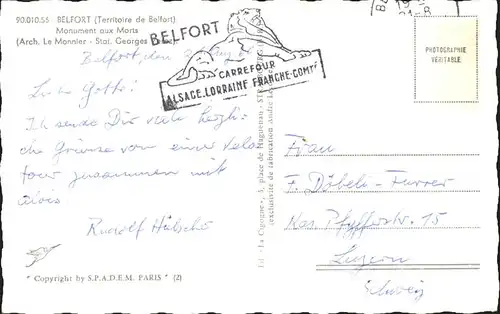 90.010.55 BELFORT (Territoire de Belfort)
Monument aux Morts
(Arch. Le Monnier - Stat. Georges
BELFORT
CARREFOUR
ALSACE.LORRAINE FRANCHE.COMTÉ
Belfort, den
Liebe Gotte!
Ich sende Dir viele herzli-
che Grüsse von einer Velo
tour zusammen mit
Alois
Rudolf
" Copyright by S.P.A.D.E.M. PARIS " (2)
Ed. «La Cigogne», 3, place de Haguenau -
(exclusivité de fabrication André
PHOTOGRAPHIE
VÉRITABLE
Frau
F. Döbeli-Furrer
Kas. Pfyfferstr. 15
Luzern
Schweiz